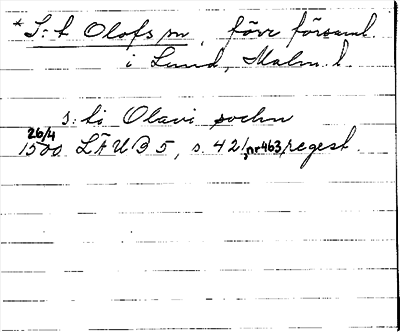 * S:t Olofs sn, förr församl.
i Lund, Malm. l.
s:ti Olavi sochn
26/4
1500 LÄUB 5, s. 421, nr 463, regest.